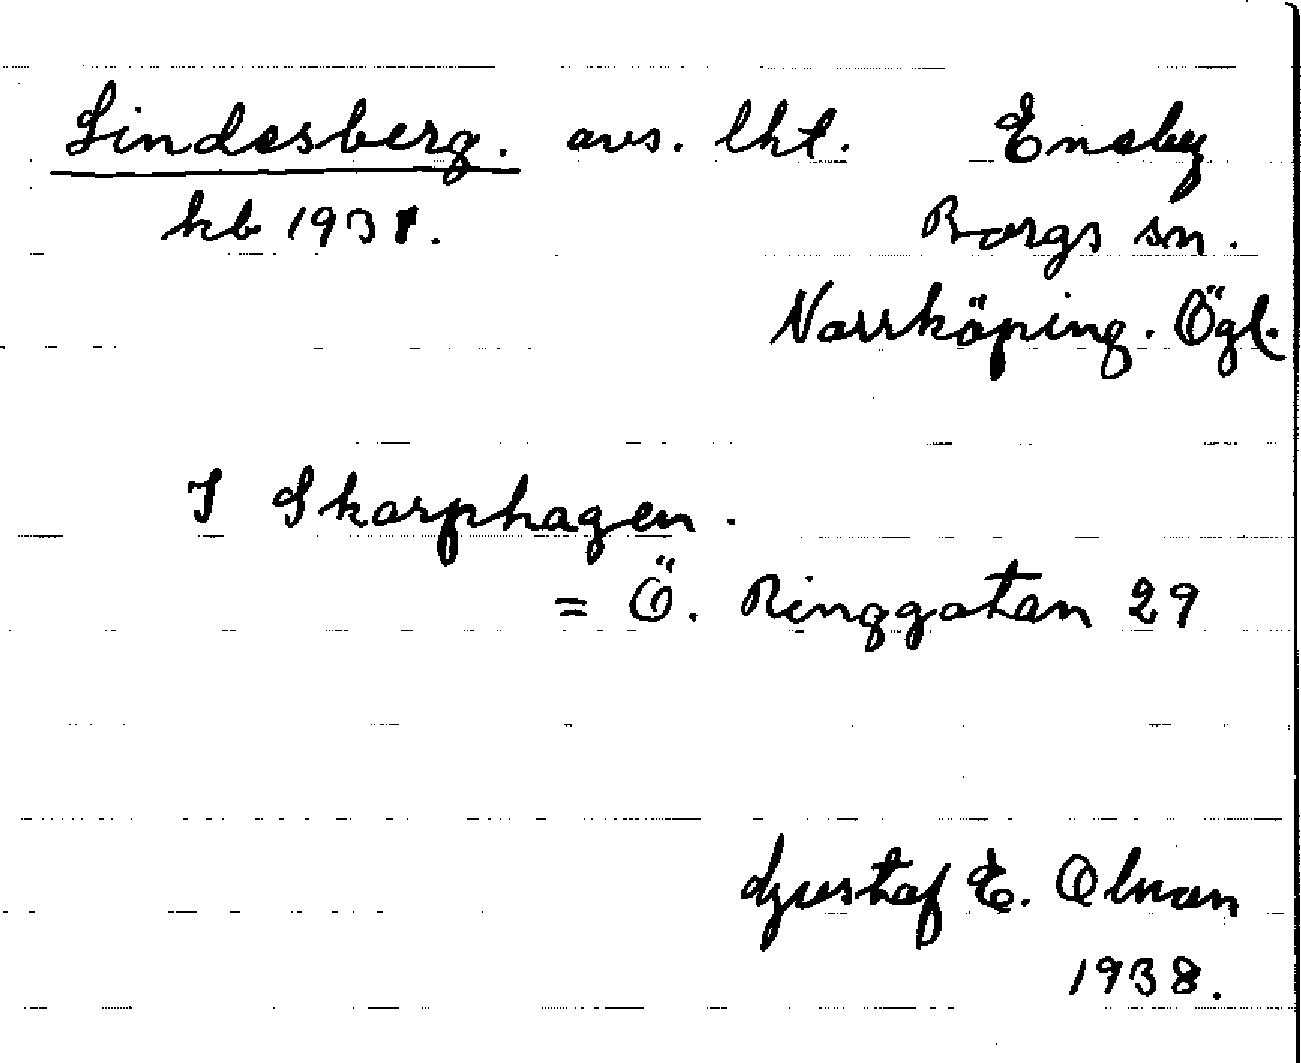 Lindesberg. avs. lht. Eneby
kb 1931. Borgs sn.
Norrköping. Ögl.
I Skarphagen.
= Ö. Ringgatan 29
Gustaf E. Olman
1938.